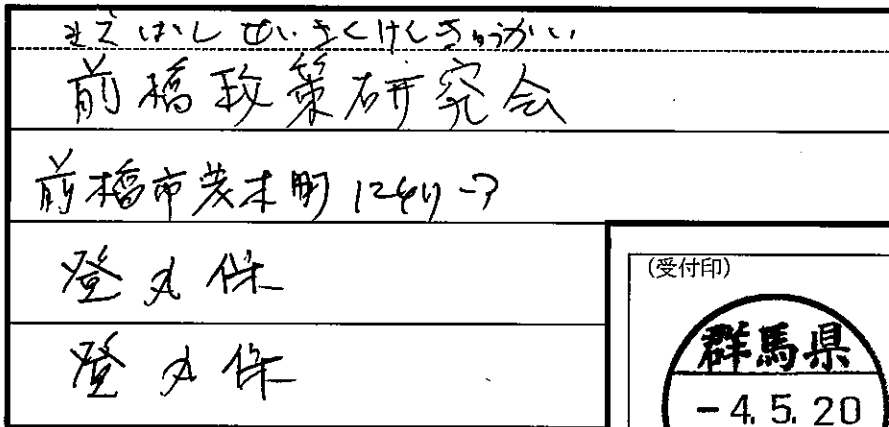 まえばしせいさくけんきゅうかい
前橋政策研究会
前橋市茂木町
登丸保
登丸保
(受付印)
群馬県
-4.5.20